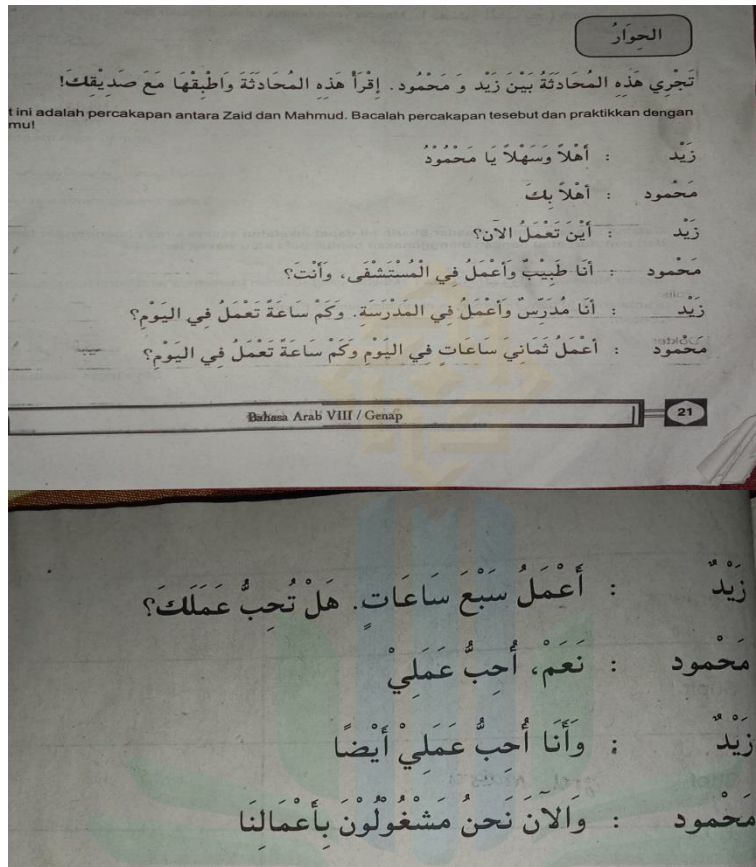 الحِوَارُ
تَجْرِي هَذِهِ المُحَادَثَةُ بَيْنَ زَيْد وَ مَحْمُود. إِقْرَأْ هَذِهِ المُحَادَثَةَ وَاطْبِقْهَا مَعَ صَدِيْقِكَ!
t ini adalah percakapan antara Zaid dan Mahmud. Bacalah percakapan tesebut dan praktikkan dengan
mu!
زَيْد : أَهْلاً وَسَهْلاً يَا مَحْمُوْدُ
مَحْمُود : أَهْلاً بِكَ
زَيْد : أَيْنَ تَعْمَلُ الآنَ؟
مَحْمُود : أَنَا طَبِيْبٌ وَأَعْمَلُ فِي الْمُسْتَشْفَى، وَأَنْتَ؟
زَيْد : أَنَا مُدَرِّسٌ وَأَعْمَلُ فِي المَدْرَسَةِ. وَكَمْ سَاعَةً تَعْمَلُ فِي اليَوْمِ؟
مَحْمُود : أَعْمَلُ ثَمَانِيَ سَاعَاتٍ فِي اليَوْمِ وَكَمْ سَاعَةً تَعْمَلُ فِي اليَوْمِ؟
Bahasa Arab VIII / Genap 21
زَيْدٌ : أَعْمَلُ سَبْعَ سَاعَاتٍ. هَلْ تُحِبُّ عَمَلَكَ؟
مَحْمود : نَعَمْ، أُحِبُّ عَمَلِيْ
زَيْدٌ : وَأَنَا أُحِبُّ عَمَلِيْ أَيْضًا
مَحْمود : وَالآنَ نَحنُ مَشْغُوْلُوْنَ بِأَعْمَالِنَا